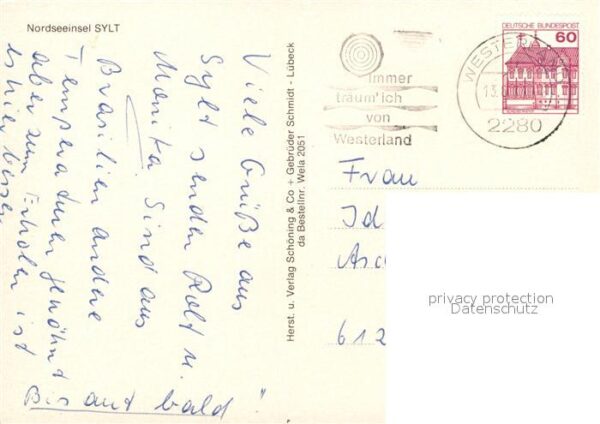 Nordseeinsel SYLT
Viele Grüße aus
Sylt senden Ralf u.
Monika. Sind aus
Brasilien andere
Temperaturen gewöhnt
aber zum Erholen ist
es hier besser
Bis auf bald"
Herst. u. Verlag Schöning & Co + Gebrüder Schmidt - Lübeck
da Bestellnr. Wela 2051
immer
träum'ich
von
Westerland
WESTER
13.
2280
DEUTSCHE BUNDESPOST
60
Frau
Id
612
privacy protection
Datenschutz